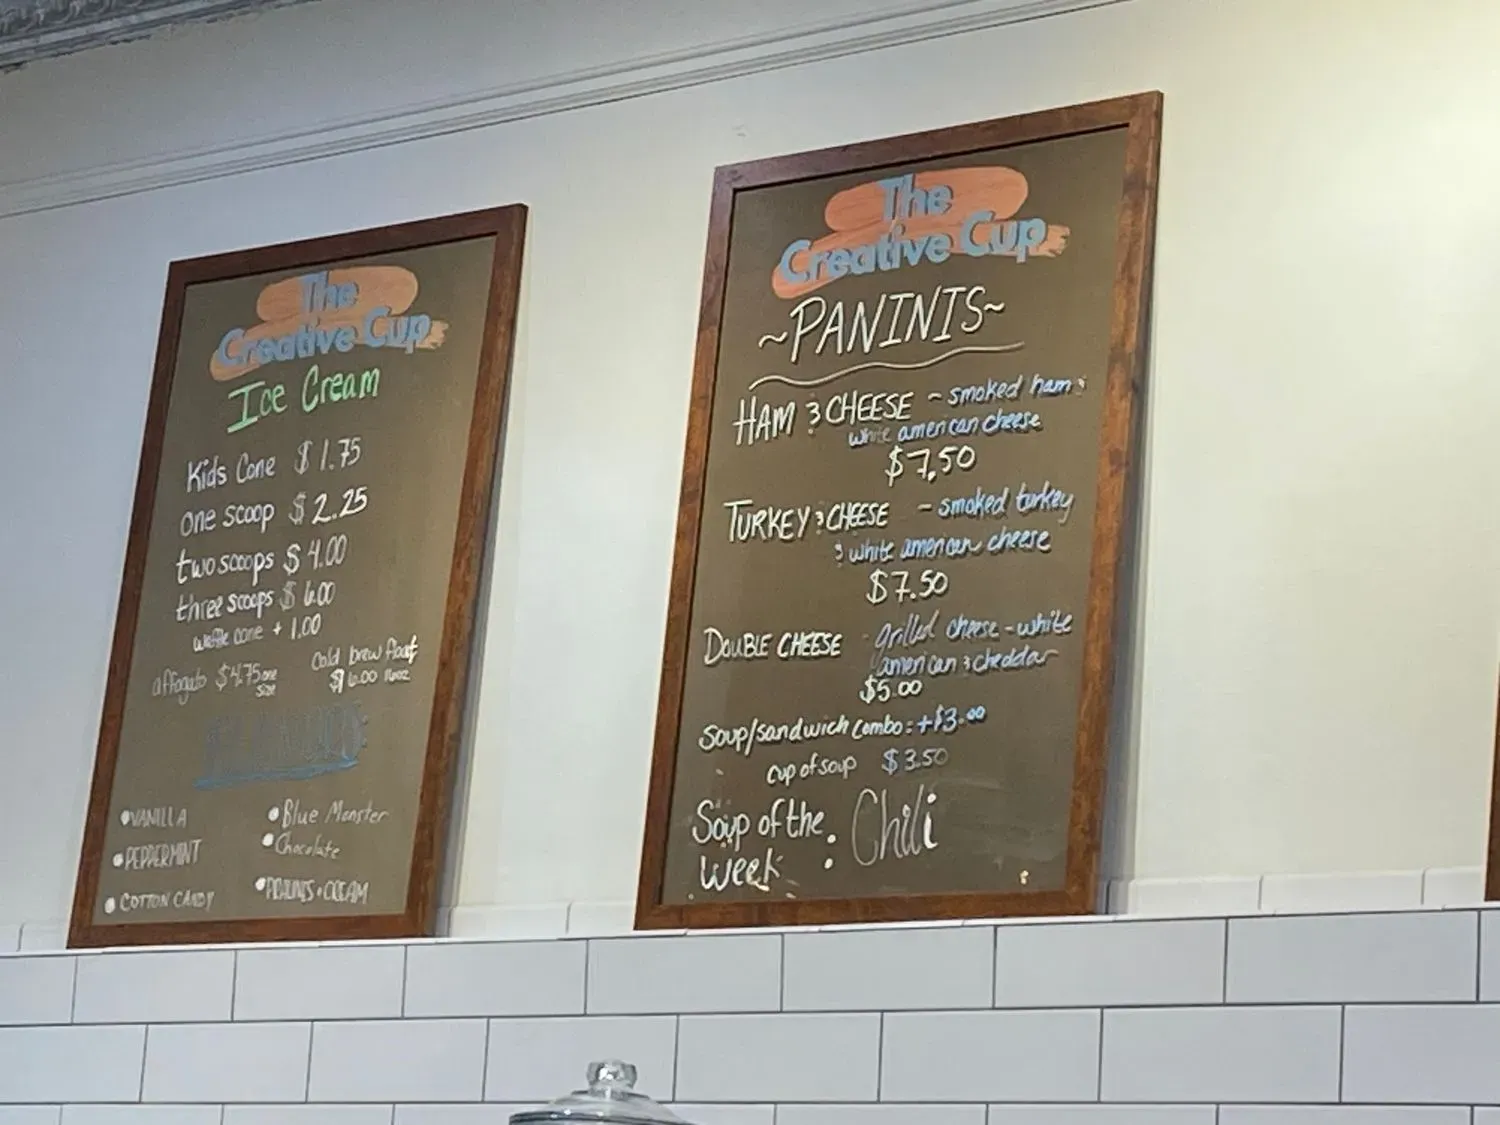 The
Creative Cup
Ice Cream
Kids Cone $1.75
one scoop $2.25
two scoops $4.00
three scoops $6.00
waffle cone + 1.00
affogato $4.75 one
size
Cold brew float
$6.00 16oz
• VANILLA
• PEPPERMINT
• COTTON CANDY
• Blue Monster
• Chocolate
• PRALINES + CREAM
The
Creative Cup
~PANINIS~
HAM & CHEESE - smoked ham &
white american cheese
$7.50
TURKEY & CHEESE - smoked turkey
& white american cheese
$7.50
DOUBLE CHEESE grilled cheese - white
american & cheddar
$5.00
Soup/sandwich combo: +$3.00
cup of soup $3.50
Soup of the
Week: Chili